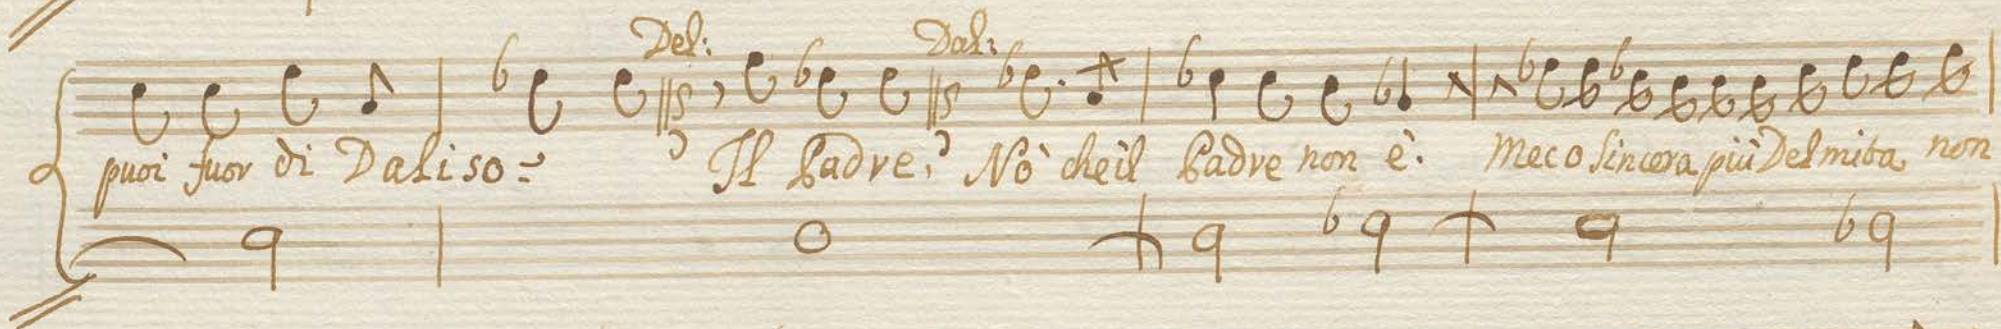 Del: Dal:
puoi fuor di Daliso= Il Padre? Nò che il Padre non è. Meco sincera più Delmita non